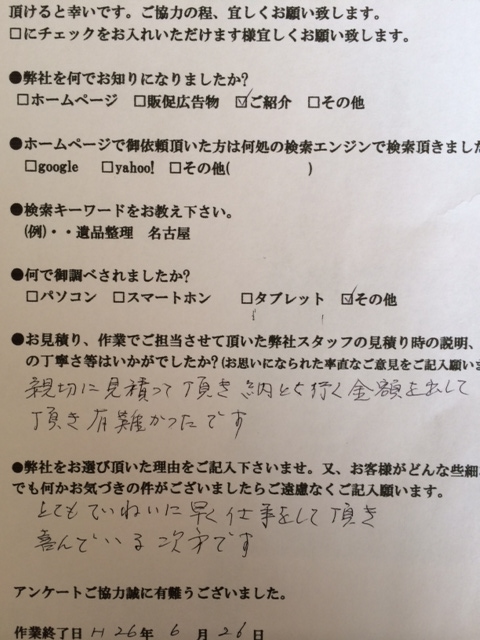 頂けると幸いです。ご協力の程、宜しくお願い致します。
□にチェックをお入れいただけます様宜しくお願い致します。
●弊社を何でお知りになりましたか?
□ホームページ □販促広告物 ☑ご紹介 □その他
●ホームページで御依頼頂いた方は何処の検索エンジンで検索頂きました
□google □yahoo! □その他( )
●検索キーワードをお教え下さい。
(例)・・遺品整理 名古屋
●何で御調べされましたか?
□パソコン □スマートホン □タブレット ☑その他
●お見積り、作業でご担当させて頂いた弊社スタッフの見積り時の説明、
の丁寧さ等はいかがでしたか?(お思いになられた率直なご意見をご記入願いま
親切に見積って頂き 納とく行く金額を出して
頂き有難かったです
●弊社をお選び頂いた理由をご記入下さいませ。又、お客様がどんな些細
でも何かお気づきの件がございましたらご遠慮なくご記入願います。
とてもていねいに早く仕事をして頂き
喜んでいる次才です
アンケートご協力誠に有難うございました。
作業終了日 H 26年 6 月 26日